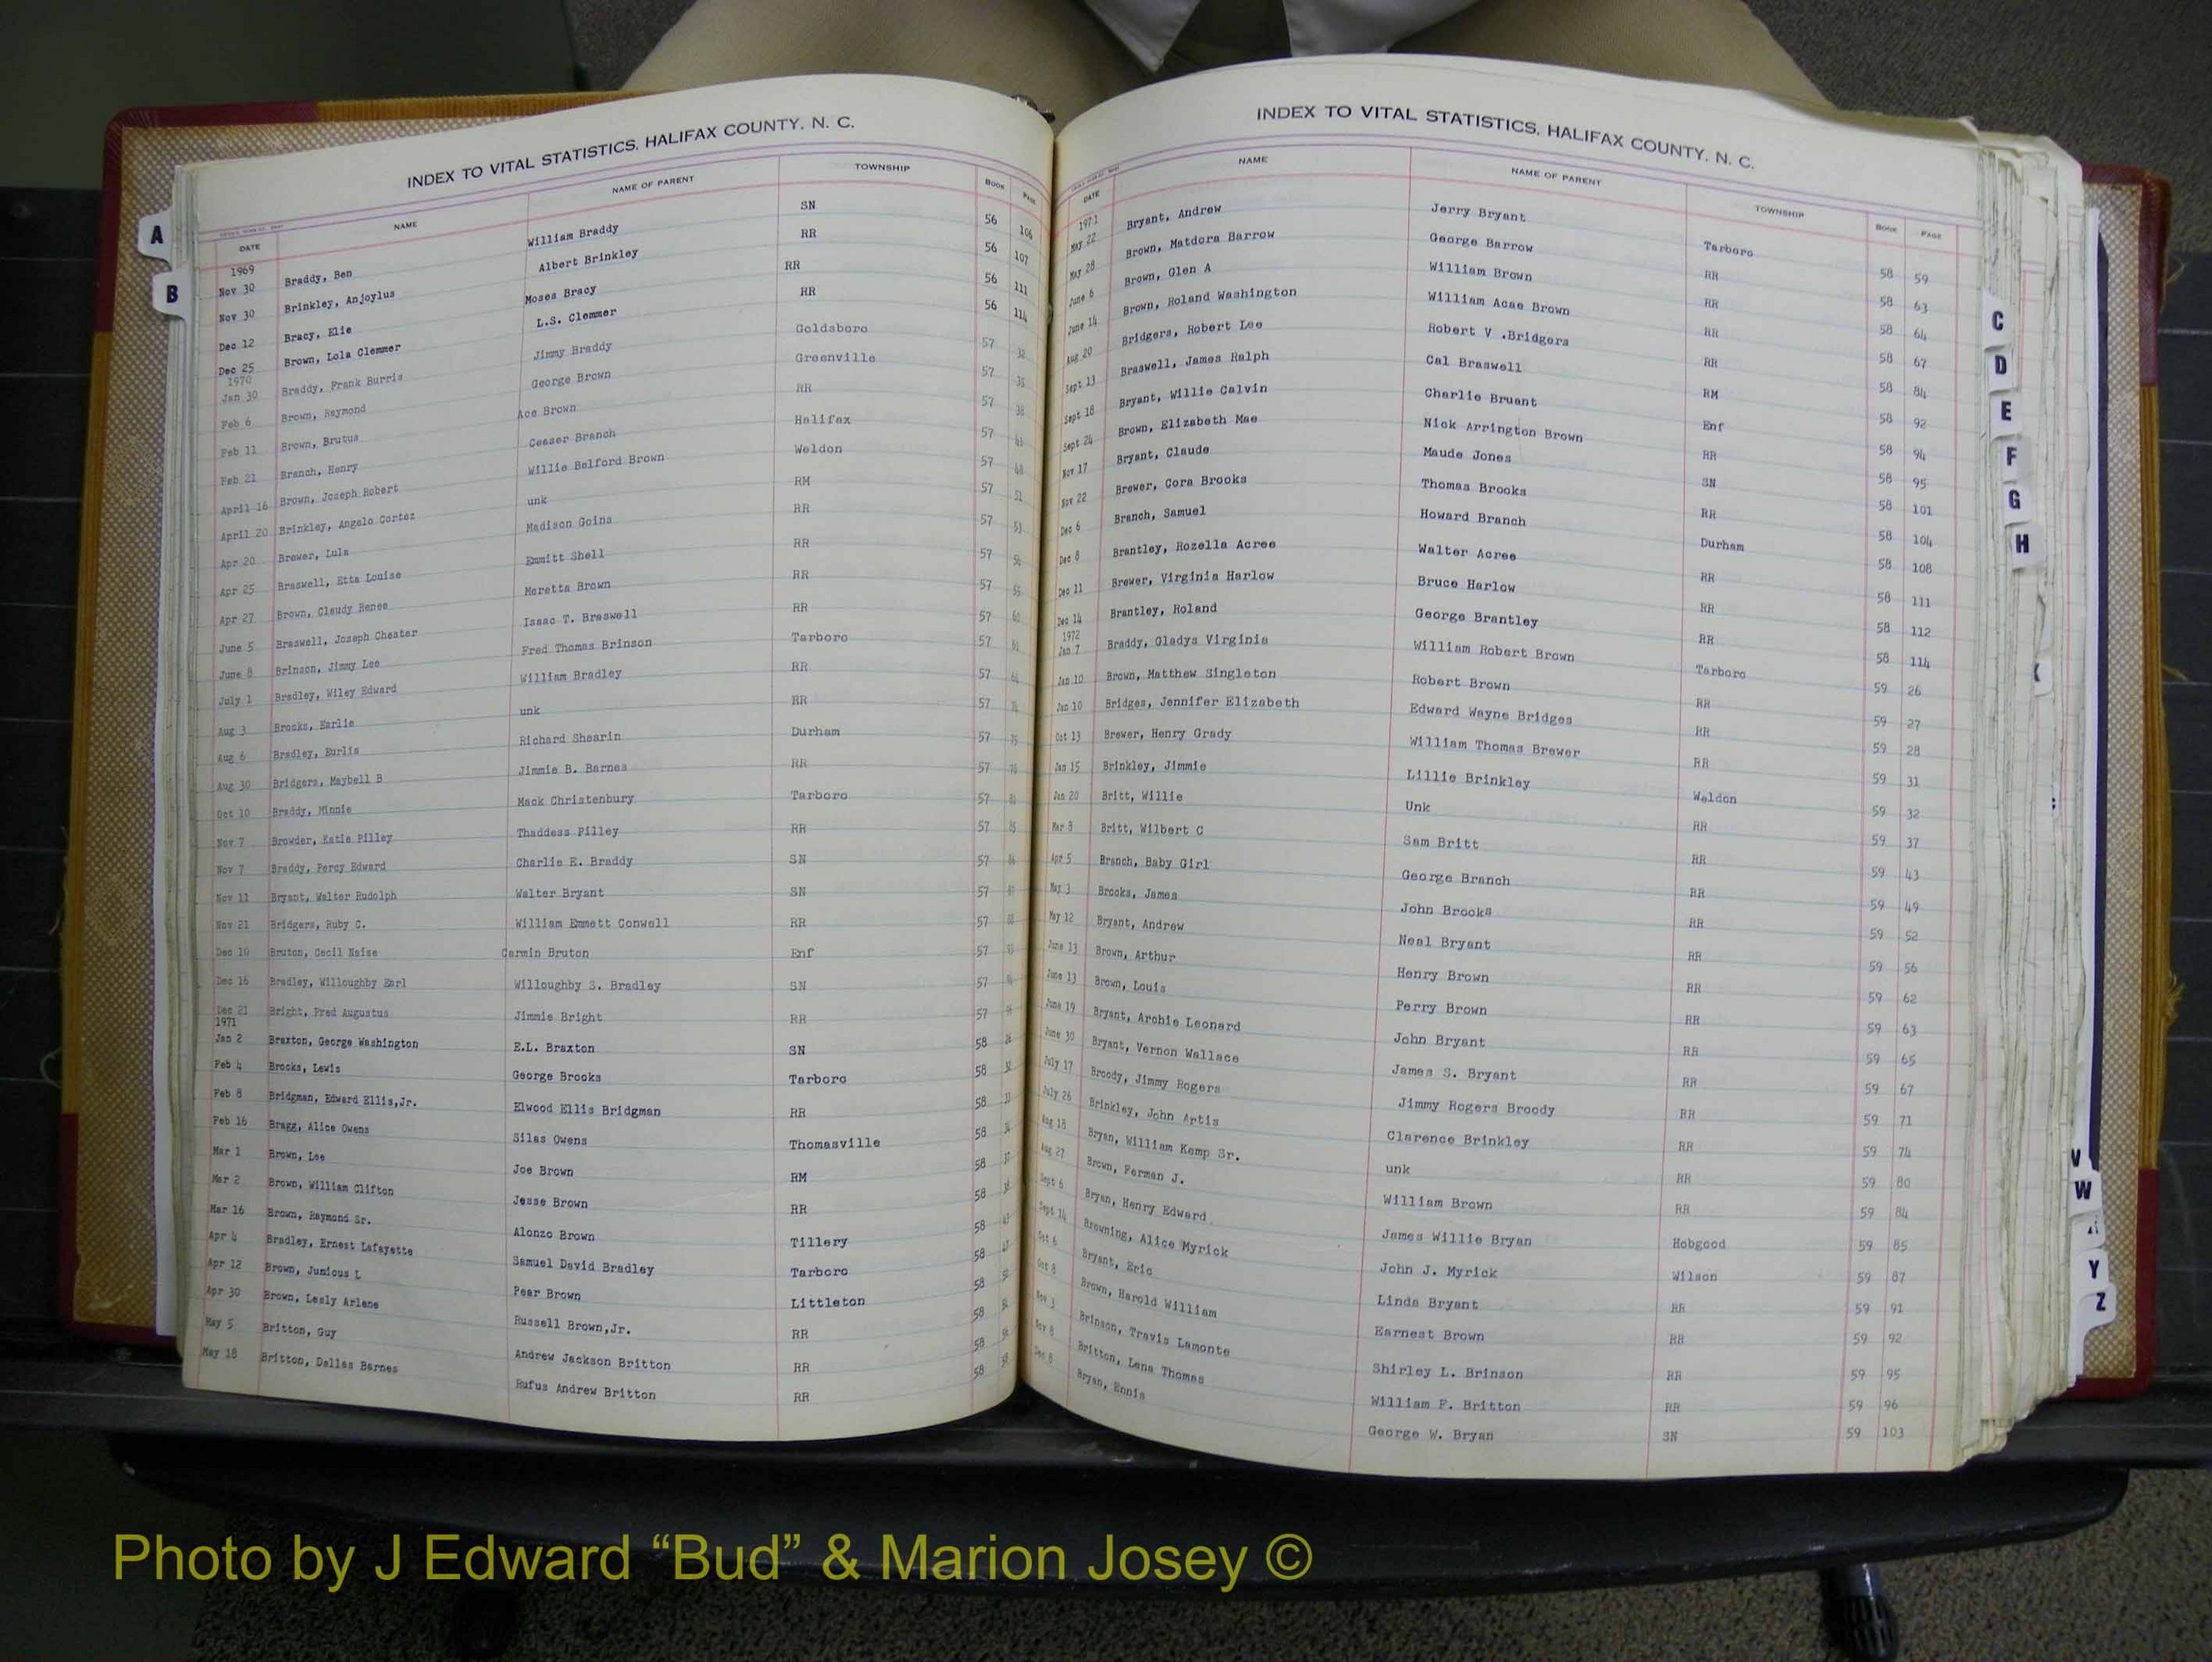 INDEX TO VITAL STATISTICS, HALIFAX COUNTY, N. C.
DATE NAME NAME OF PARENT TOWNSHIP BOOK PAGE
1969
Nov 30 Braddy, Ben William Braddy SN 56 106
Nov 30 Brinkley, Anjoylus Albert Brinkley RR 56 107
Dec 12 Bracy, Elie Moses Bracy RR 56 111
Dec 25 Brown, Lola Clemmer L.S. Clemmer RR 56 114
1970
Jan 30 Braddy, Frank Burris Jimmy Braddy Goldsboro 57 32
Feb 6 Brown, Raymond George Brown Greenville 57 35
Feb 11 Brown, Brutus Ace Brown RR 57 38
Feb 21 Branch, Henry Ceaser Branch Halifax 57
April 16 Brown, Joseph Robert Willie Belford Brown Weldon 57
April 20 Brinkley, Angelo Cortez unk RM 57 51
Apr 20 Brewer, Lula Madison Goins RR 57 53
Apr 25 Braswell, Etta Louise Emmitt Shell RR 57
Apr 27 Brown, Claudy Renee Moretta Brown RR 57
June 5 Braswell, Joseph Chester Isaac T. Braswell RR 57
June 8 Brinson, Jimmy Lee Fred Thomas Brinson Tarboro 57
July 1 Bradley, Wiley Edward William Bradley RR 57
Aug 3 Brooks, Earlie unk RR 57
Aug 6 Bradley, Eurlis Richard Shearin Durham 57
Aug 30 Bridgers, Maybell B Jimmie B. Barnes RR 57
Oct 10 Braddy, Minnie Mack Christenbury Tarboro 57
Nov 7 Browder, Katie Pilley Thaddess Pilley RR 57
Nov 7 Braddy, Percy Edward Charlie E. Braddy SN 57
Nov 11 Bryant, Walter Rudolph Walter Bryant SN 57
Nov 21 Bridgers, Ruby C. William Emmett Conwell RR 57
Dec 10 Bruton, Cecil Naise Carmin Bruton Enf 57
Dec 16 Bradley, Willoughby Earl Willoughby S. Bradley SN 57
Dec 21 Bright, Fred Augustus Jimmie Bright RR 57
1971
Jan 2 Braxton, George Washington E.L. Braxton SN 58
Feb 4 Brooks, Lewis George Brooks Tarboro 58
Feb 8 Bridgman, Edward Ellis,Jr. Elwood Ellis Bridgman RR 58
Feb 16 Bragg, Alice Owens Silas Owens Thomasville 58
Mar 1 Brown, Lee Joe Brown RM 58
Mar 2 Brown, William Clifton Jesse Brown RR 58
Mar 16 Brown, Raymond Sr. Alonzo Brown Tillery 58
Apr 4 Bradley, Ernest Lafayette Samuel David Bradley Tarboro 58
Apr 12 Brown, Junious L Pear Brown Littleton 58
Apr 30 Brown, Lesly Arlene Russell Brown,Jr. RR 58
May 5 Britton, Guy Andrew Jackson Britton RR 58
May 18 Britton, Dallas Barnes Rufus Andrew Britton RR 58
INDEX TO VITAL STATISTICS, HALIFAX COUNTY, N. C.
DATE NAME NAME OF PARENT TOWNSHIP BOOK PAGE
1971
May 22 Bryant, Andrew Jerry Bryant Tarboro 58 59
May 28 Brown, Matdora Barrow George Barrow RR 58 63
June 6 Brown, Glen A William Brown RR 58 64
June 14 Brown, Roland Washington William Acae Brown RR 58 67
Aug 20 Bridgers, Robert Lee Robert V .Bridgers RR 58 84
Sept 13 Braswell, James Ralph Cal Braswell RM 58 92
Sept 18 Bryant, Willie Calvin Charlie Bruant Enf 58 94
Sept 24 Brown, Elizabeth Mae Nick Arrington Brown RR 58 95
Nov 17 Bryant, Claude Maude Jones SN 58 101
Nov 22 Brewer, Cora Brooks Thomas Brooks RR 58 104
Dec 6 Branch, Samuel Howard Branch Durham 58 108
Dec 8 Brantley, Rozella Acree Walter Acree RR 58 111
Dec 11 Brewer, Virginia Harlow Bruce Harlow RR 58 112
Dec 14 Brantley, Roland George Brantley RR 58 114
1972
Jan 7 Braddy, Gladys Virginia William Robert Brown Tarboro 59 26
Jan 10 Brown, Matthew Singleton Robert Brown RR 59 27
Jan 10 Bridges, Jennifer Elizabeth Edward Wayne Bridges RR 59 28
Oct 13 Brewer, Henry Grady William Thomas Brewer RR 59 31
Jan 15 Brinkley, Jimmie Lillie Brinkley Weldon 59 32
Jan 20 Britt, Willie Unk RR 59 37
Mar 8 Britt, Wilbert C Sam Britt RR 59 43
Apr 5 Branch, Baby Girl George Branch RR 59 49
May 3 Brooks, James John Brooks RR 59 52
May 12 Bryant, Andrew Neal Bryant RR 59 56
June 13 Brown, Arthur Henry Brown RR 59 62
June 13 Brown, Louis Perry Brown RR 59 63
June 19 Bryant, Archie Leonard John Bryant RR 59 65
June 30 Bryant, Vernon Wallace James S. Bryant RR 59 67
July 17 Broody, Jimmy Rogers Jimmy Rogers Broody RR 59 71
July 26 Brinkley, John Artis Clarence Brinkley RR 59 74
Aug 18 Bryan, William Kemp Sr. unk RR 59 80
Aug 27 Brown, Ferman J. William Brown RR 59 84
Sept 6 Bryan, Henry Edward James Willie Bryan Hobgood 59 85
Sept 14 Browning, Alice Myrick John J. Myrick Wilson 59 87
Oct 6 Bryant, Eric Linda Bryant RR 59 91
Oct 8 Brown, Harold William Earnest Brown RR 59 92
Nov 3 Brinson, Travis Lamonte Shirley L. Brinson RR 59 95
Nov 8 Britton, Lena Thomas William F. Britton RR 59 96
Dec 8 Bryan, Ennis George W. Bryan SN 59 103
A
B
C
D
E
F
G
H
V
W
Y
Z
Photo by J Edward “Bud” & Marion Josey ©